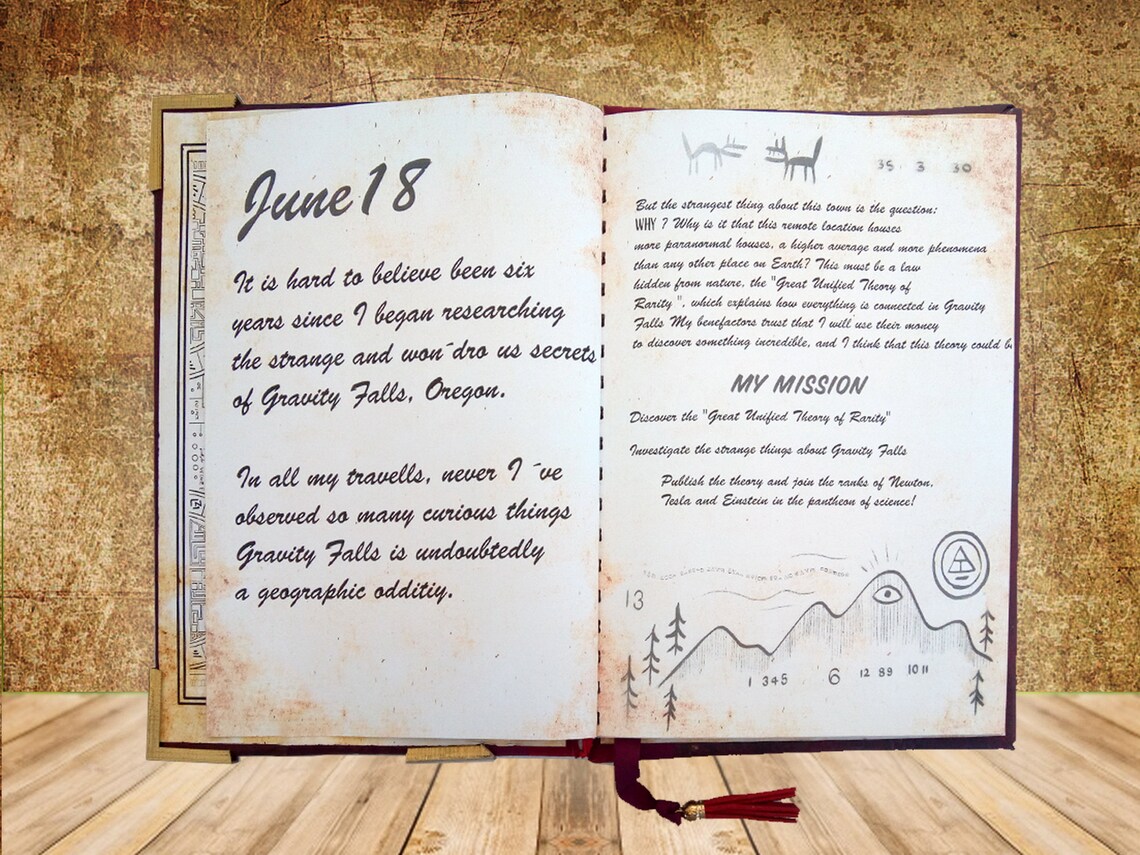 June 18
It is hard to believe been six
years since I began researching
the strange and won´dro us secrets
of Gravity Falls, Oregon.
In all my travells, never I ´ve
observed so many curious things
Gravity Falls is undoubtedly
a geographic odditiy.
35 3 30
But the strangest thing about this town is the question:
WHY ? Why is it that this remote location houses
more paranormal houses, a higher average and more phenomena
than any other place on Earth? This must be a law
hidden from nature, the "Great Unified Theory of
Rarity ", which explains how everything is connected in Gravity
Falls My benefactors trust that I will use their money
to discover something incredible, and I think that this theory could
MY MISSION
Discover the "Great Unified Theory of Rarity"
Investigate the strange things about Gravity Falls
Publish the theory and join the ranks of Newton,
Tesla and Einstein in the pantheon of science!
13
1 345 6 12 89 10 11